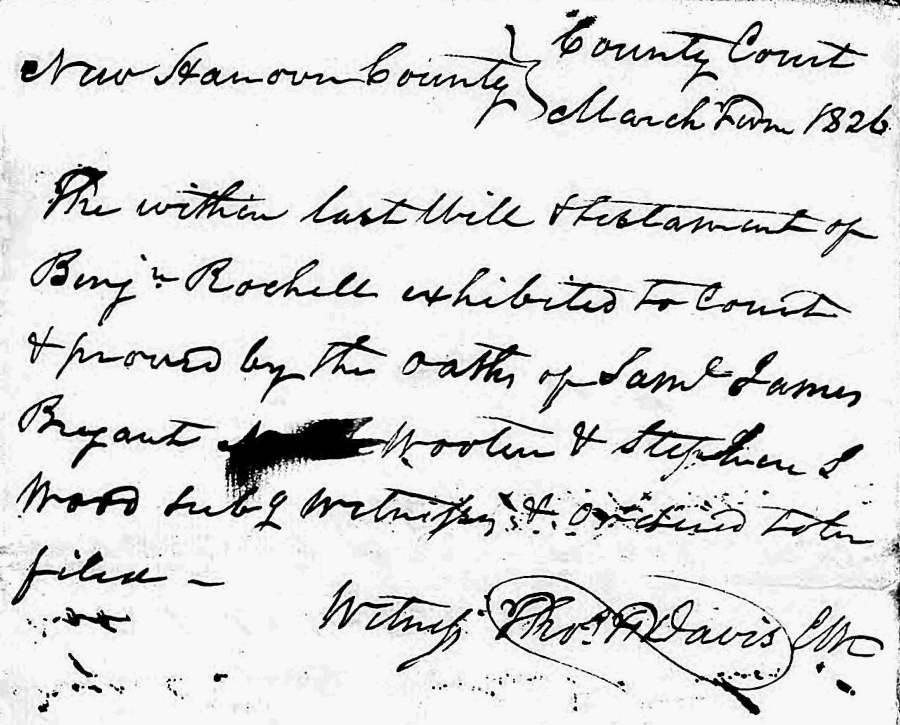 New Hanover County } County Court
March Term 1826
The within last Will & testament of
Benjn Rochell exhibited to Court
& proved by the oaths of Saml James
Bryant Wooten & Stephen S
Wood subg witnesses & ordered to be
filed –
Witness Thos. F Davis Clk